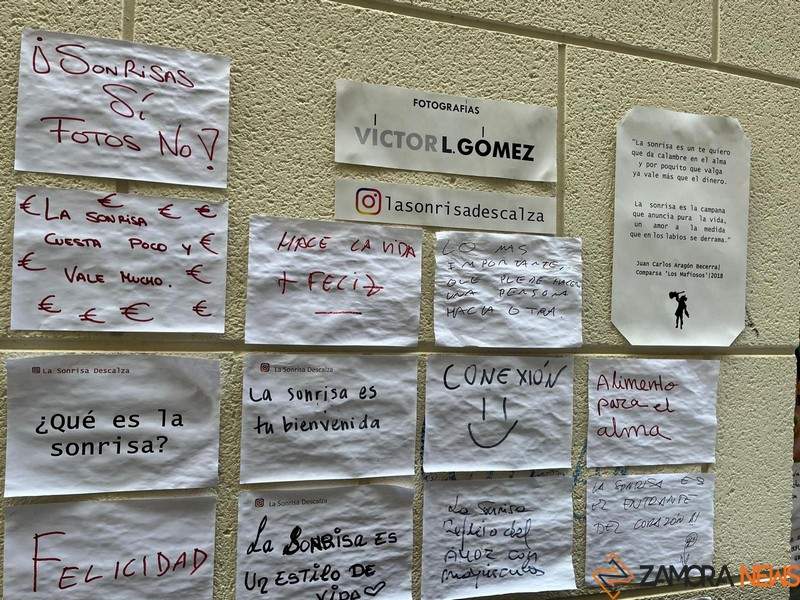 ¡SONRISAS
SÍ
FOTOS NO!
FOTOGRAFÍAS
VÍCTOR L. GÓMEZ
lasonrisadescalza
"La sonrisa es un te quiero
que da calambre en el alma
y por poquito que valga
ya vale más que el dinero.
La sonrisa es la campana
que anuncia pura la vida,
un amor a la medida
que en los labios se derrama."
Juan Carlos Aragón Becerra|
Comparsa 'Los Mafiosos'|2018
€ € € €
€ LA SONRISA
CUESTA POCO Y €
€ VALE MUCHO. €
€ € € €
HACE LA VIDA
+ FELIZ
LO MAS
IMPORTANTE,
QUE PUEDE HACER
UNA PERSONA
HACIA OTRA.
La Sonrisa Descalza
¿Qué es la
sonrisa?
La Sonrisa Descalza
La sonrisa es
tu bienvenida
CONEXIÓN
Alimento
para el
alma
FELICIDAD
La Sonrisa Descalza
La SONRISA ES
UN ESTILO DE
VIDA
La Sonrisa
Reflejo del
AMOR CON
mayúsculas
LA SONRISA ES
EL ENTRANTE
DEL CORAZÓN
ZAMORA NEWS